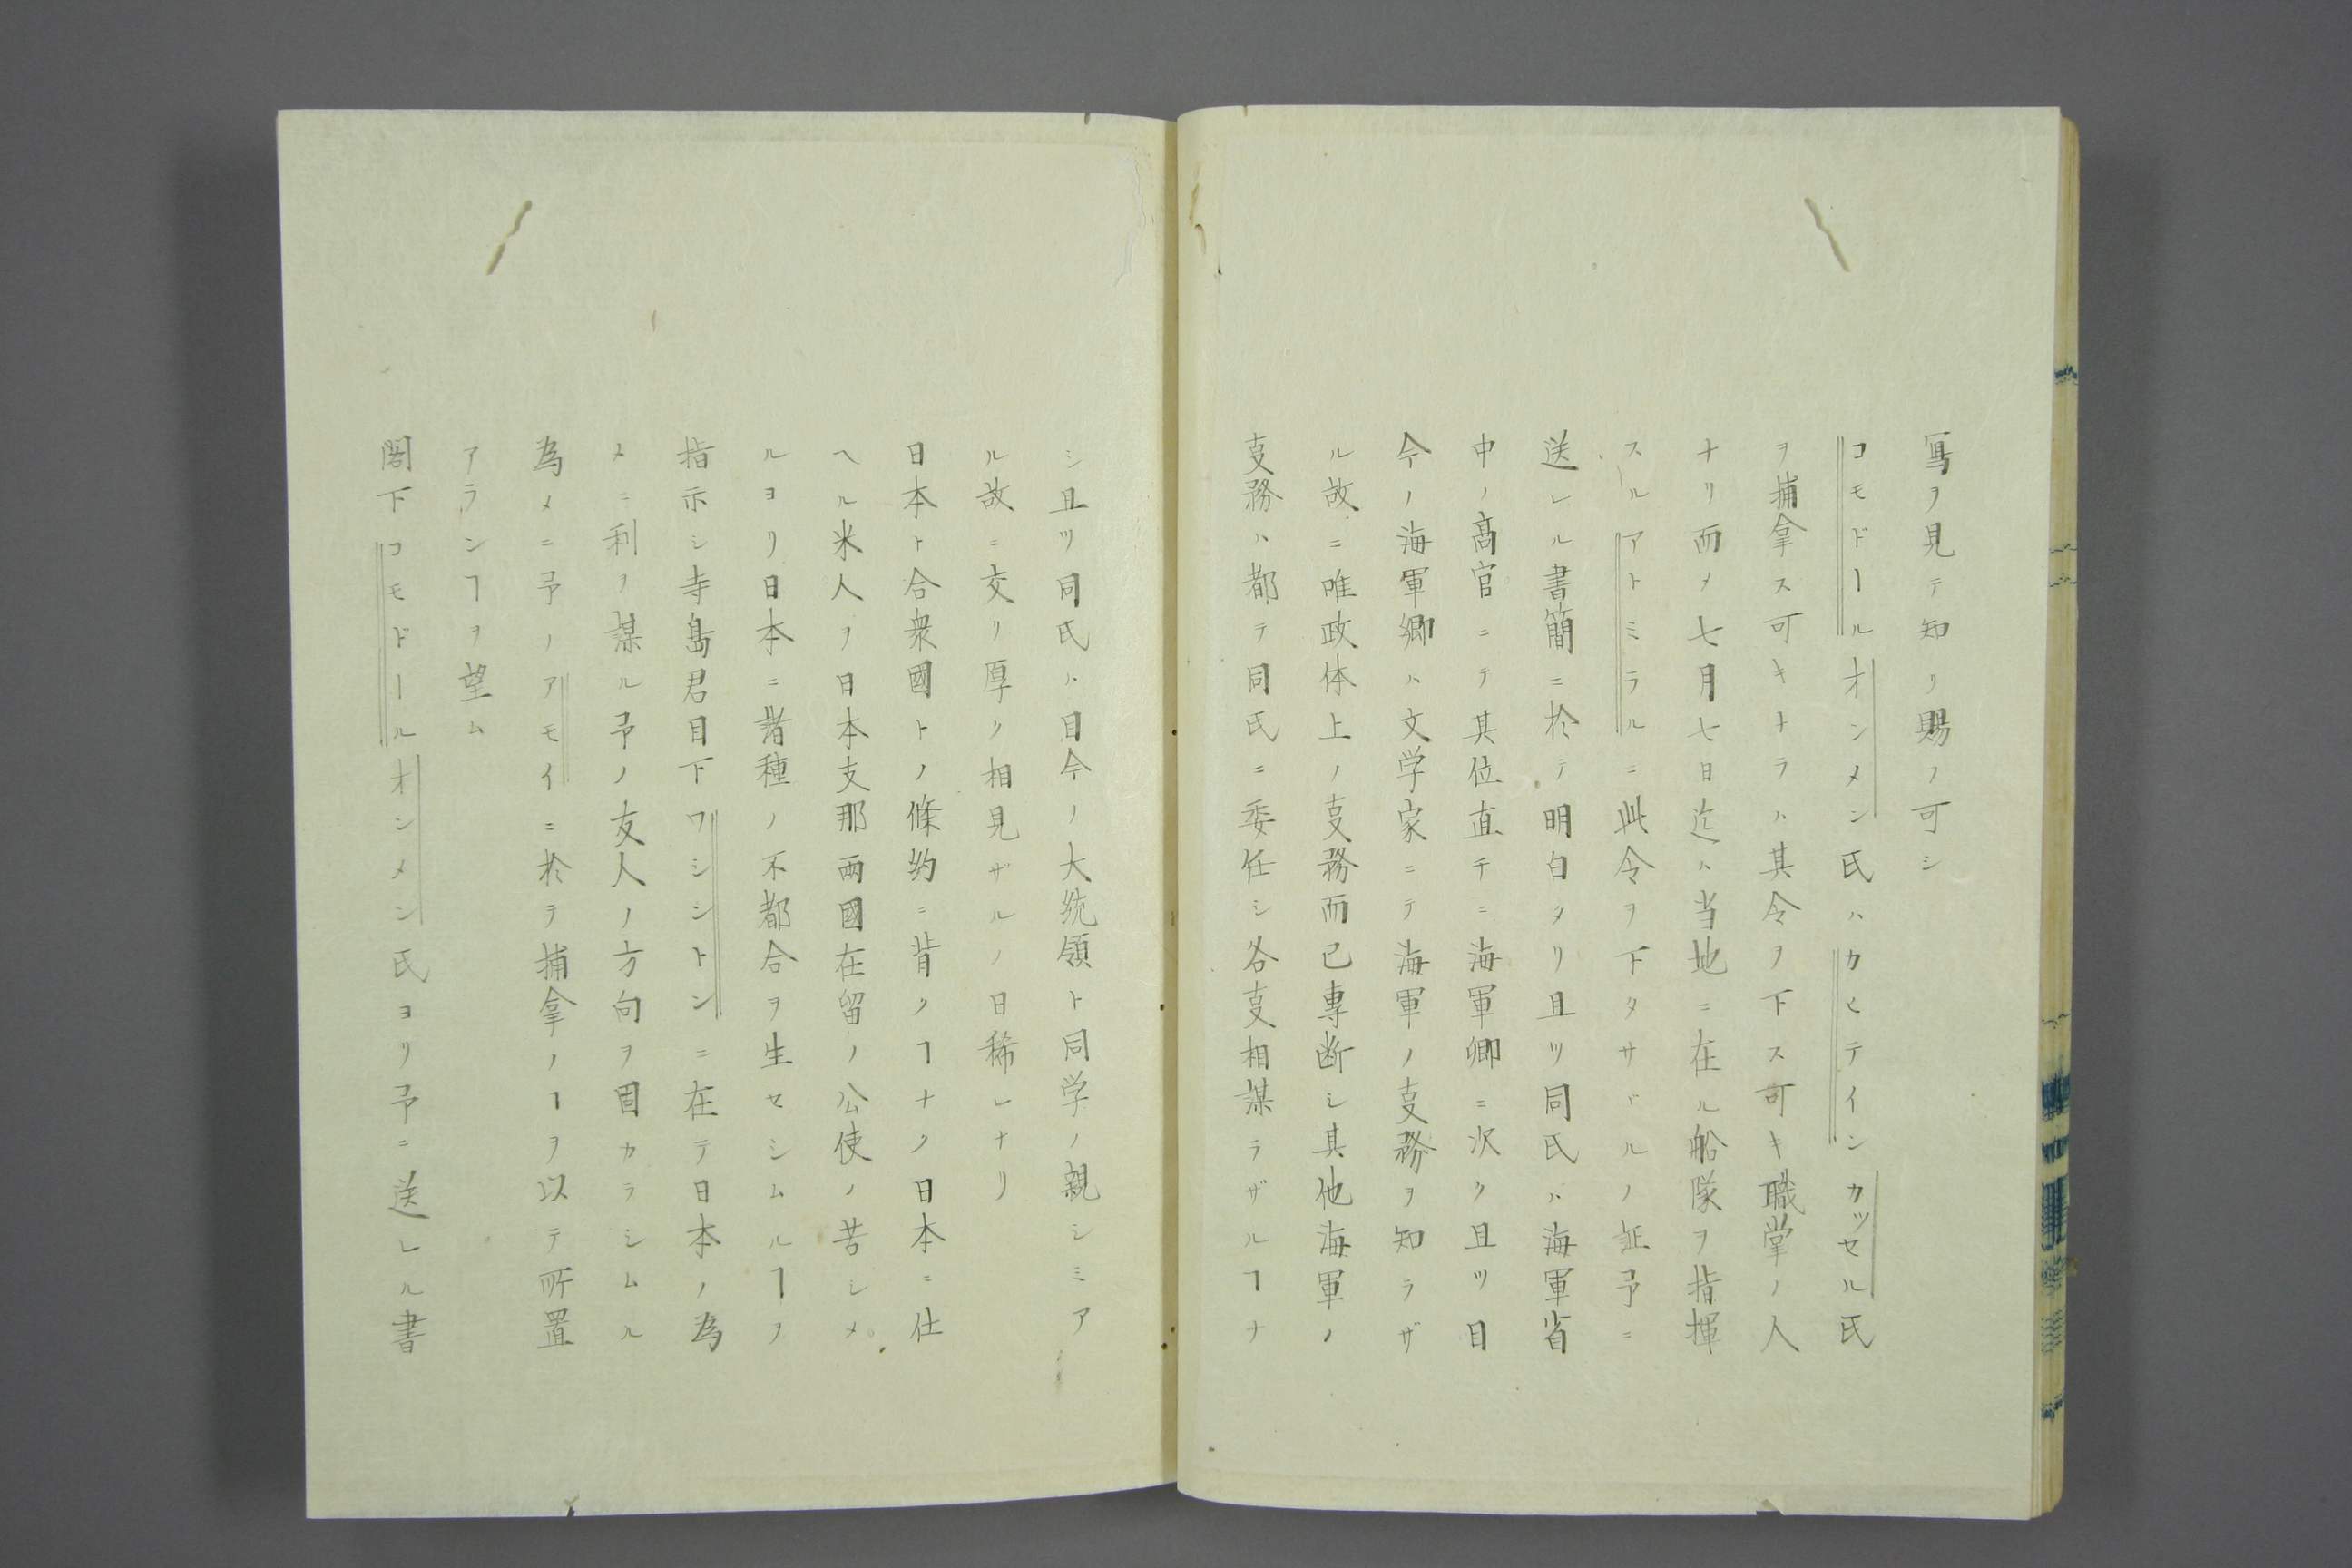 寫ヲ見テ知リ賜ノ可シ
コモドール オンメン氏ハカヒテイン カッセル氏
ヲ捕拿ス可キトナラハ其令ヲ下ス可キ職掌ノ人
ナリ而メ七月七日迄ハ当地ニ在ル船隊ヲ指揮
スルアトミラルニ此令ヲ下タサヾルノ証予ニ
送レル書簡ニ於テ明白タリ且ツ同氏ハ海軍省
中ノ高官ニテ其位直チニ海軍卿ニ次ク且ツ目
今ノ海軍卿ハ文学家ニテ海軍ノ支務ヲ知ラザ
ル故ニ唯政体上ノ支務而已専断シ其他海軍ノ
支務ハ都テ同氏ニ委任シ各支相謀ラザルヿナ
シ且ツ同氏ハ目今ノ大統領ト同学ノ親シミア
ル故ニ交リ厚ク相見ザルノ日稀レナリ
日本ト合衆國トノ條約ニ背クヿナク日本ニ仕
ヘル米人ヲ日本支那両國在留ノ公使ノ苦シメ
ルヨリ日本ニ諸種ノ不都合ヲ生セシムルヿヲ
指示シ寺島君目下ワシントンニ在テ日本ノ為
メニ利ノ謀ル予ノ友人ノ方向ヲ固カラシムル
為メニ予ノアモイニ於テ捕拿ノヿヲ以テ所置
アランヿヲ望ム
閣下コモドールオンメン氏ヨリ予ニ送レル書